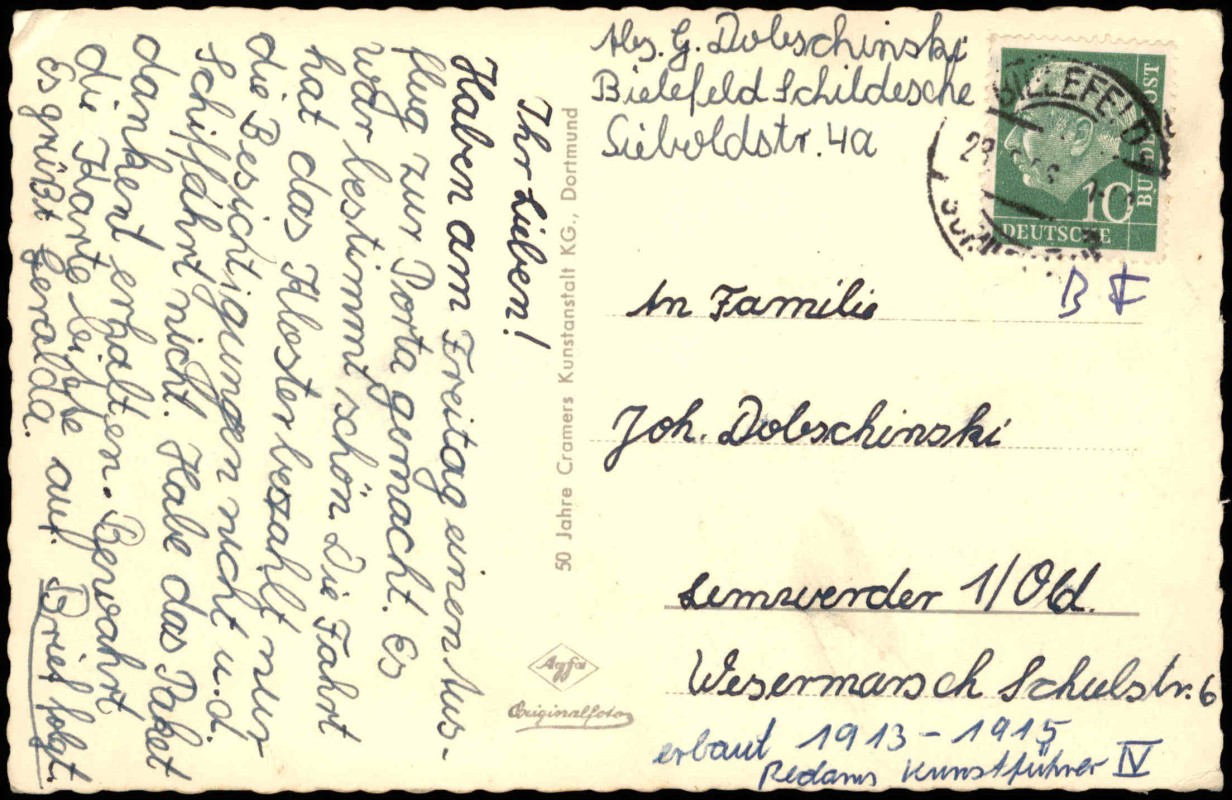 Ihr Lieben!
Haben am Freitag einen Aus-
flug zur Porta gemacht. Es
war bestimmt schön. Die Fahrt
hat das Kloster bezahlt nur
die Besichtigungen nicht u. d.
Schiffahrt nicht. Habe das Paket
dankent erhalten. Bewahrt
die Karte bitte auf. Brief folgt.
Es grüßt Geralda.
50 Jahre Cramers Kunstanstalt KG., Dortmund
Agfa
Originalfoto
Abs. G. Dobschinski
Bielefeld Schildesche
Sieboldstr. 4a
BIELEFELD
DEUTSCHE
BUNDESPOST
10
B F
An Familie
Joh. Dobschinski
Lemwerder 1/Old.
Wesermarsch Schulstr. 6
erbaut 1913 - 1915
Reclams Kunstführer IV